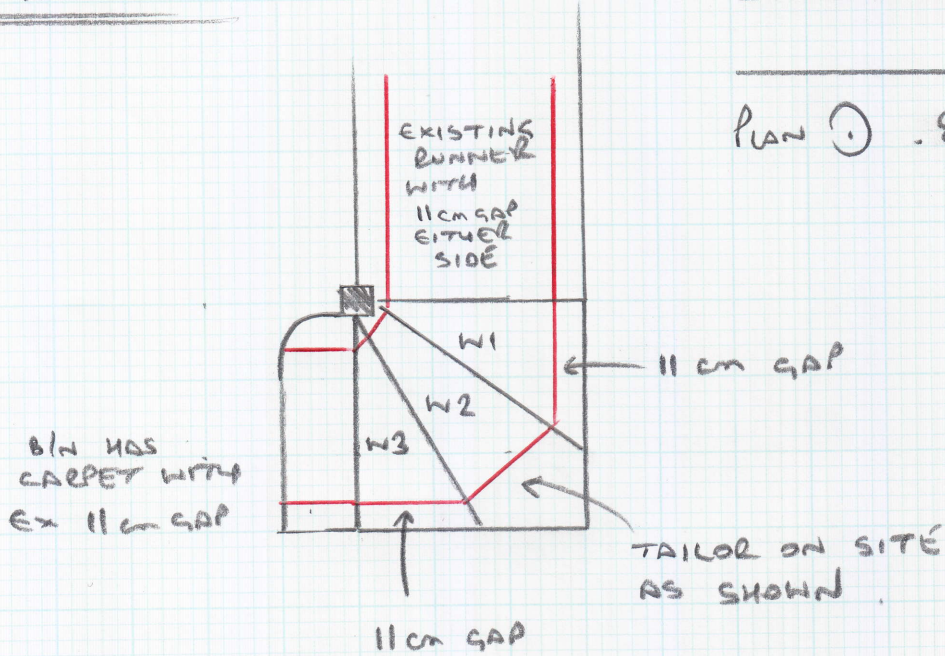 PLAN
EXISTING
RUNNER
WITH
11cm GAP
EITHER
SIDE
W1
11 cm GAP
W2
W3
B/N HAS
CARPET WITH
EX 11 cm GAP
TAILOR ON SITE
AS SHOWN.
11 cm GAP